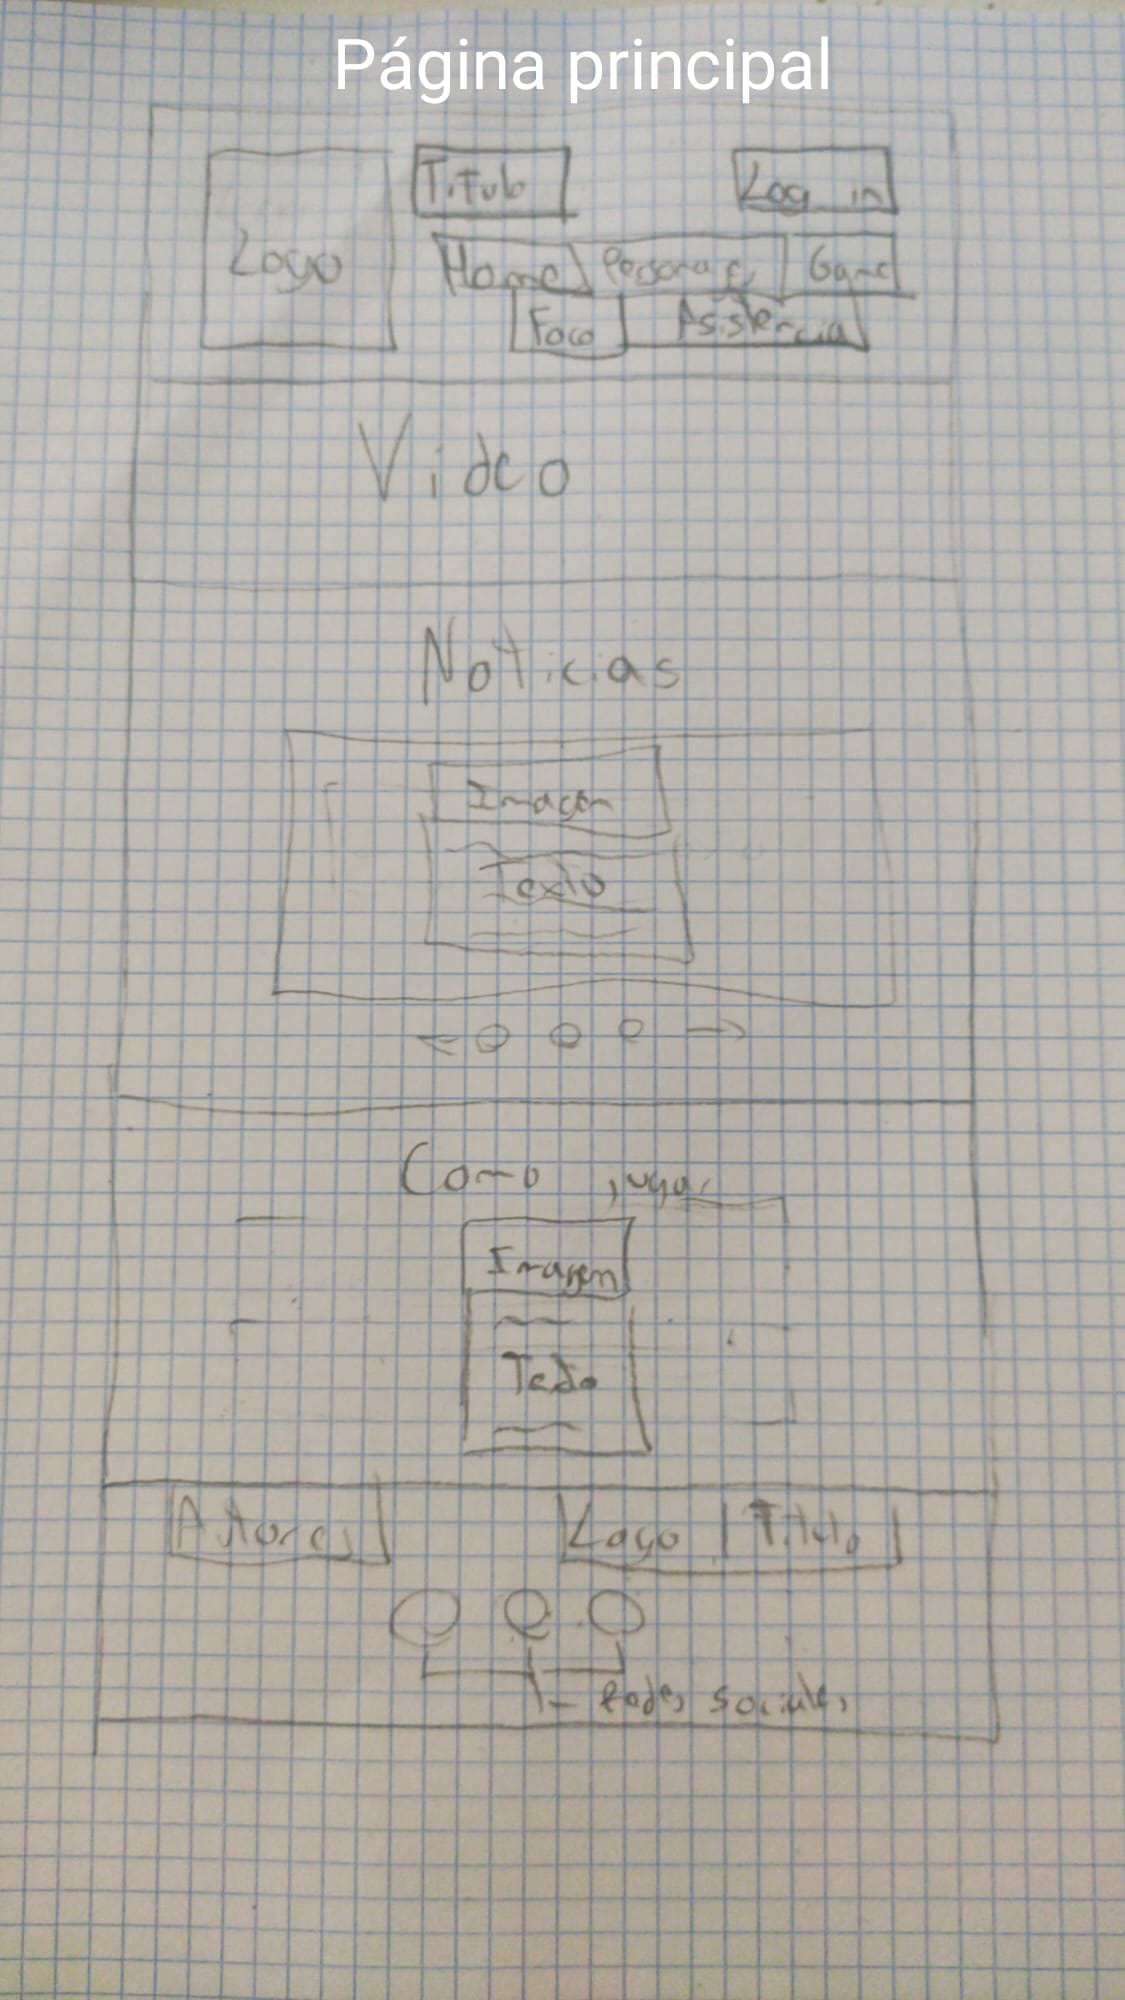 Página principal
Titulo
Log in
Logo
Home Personajes Game
Foro Asistencia
Video
Noticias
Imagen
Texto
Como jugar
Imagen
Texto
Autores
Logo Titulo
Redes sociales